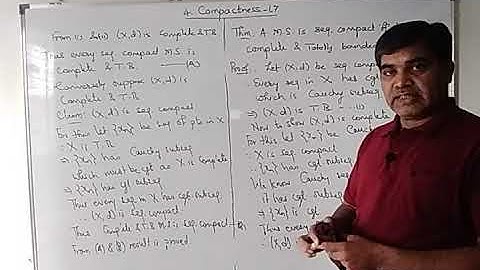 4. Compactness-L7
From (i) & (ii) (X,d) is Complete & T.B
Thus every seq. compact M.S. is
Complete & T.B. —(A)
Conversely suppose (X,d) is
Complete & T.B.
Claim: (X,d) is seq. compact
For this let {xn} be seq. of pts in X
∵ X is T.B
⇒ {xn} has Cauchy subseq.
which must be cgt as X is complete
⇒ {xn} has cgt subseq.
Thus every seq. in X has cgt subseq.
∴ (X,d) is seq. compact.
Thus Complete & T.B M.S. is seq. compact
From (A) & (B) result is proved
Thm: A M.S. is seq. compact
complete & Totally bounded
Proof: Let (X,d) be seq. compact
Every seq in X has cgt
which is Cauchy subseq
⇒ (X,d) is T.B —(i)
Now to show (X,d) is
For this let {xn} be Cauchy
∵ X is seq. compact
{xn} has cgt. subseq.
We know Cauchy seq
it has cgt subseq
⇒ {xn} is cgt
Thus every
∴ (X,d)